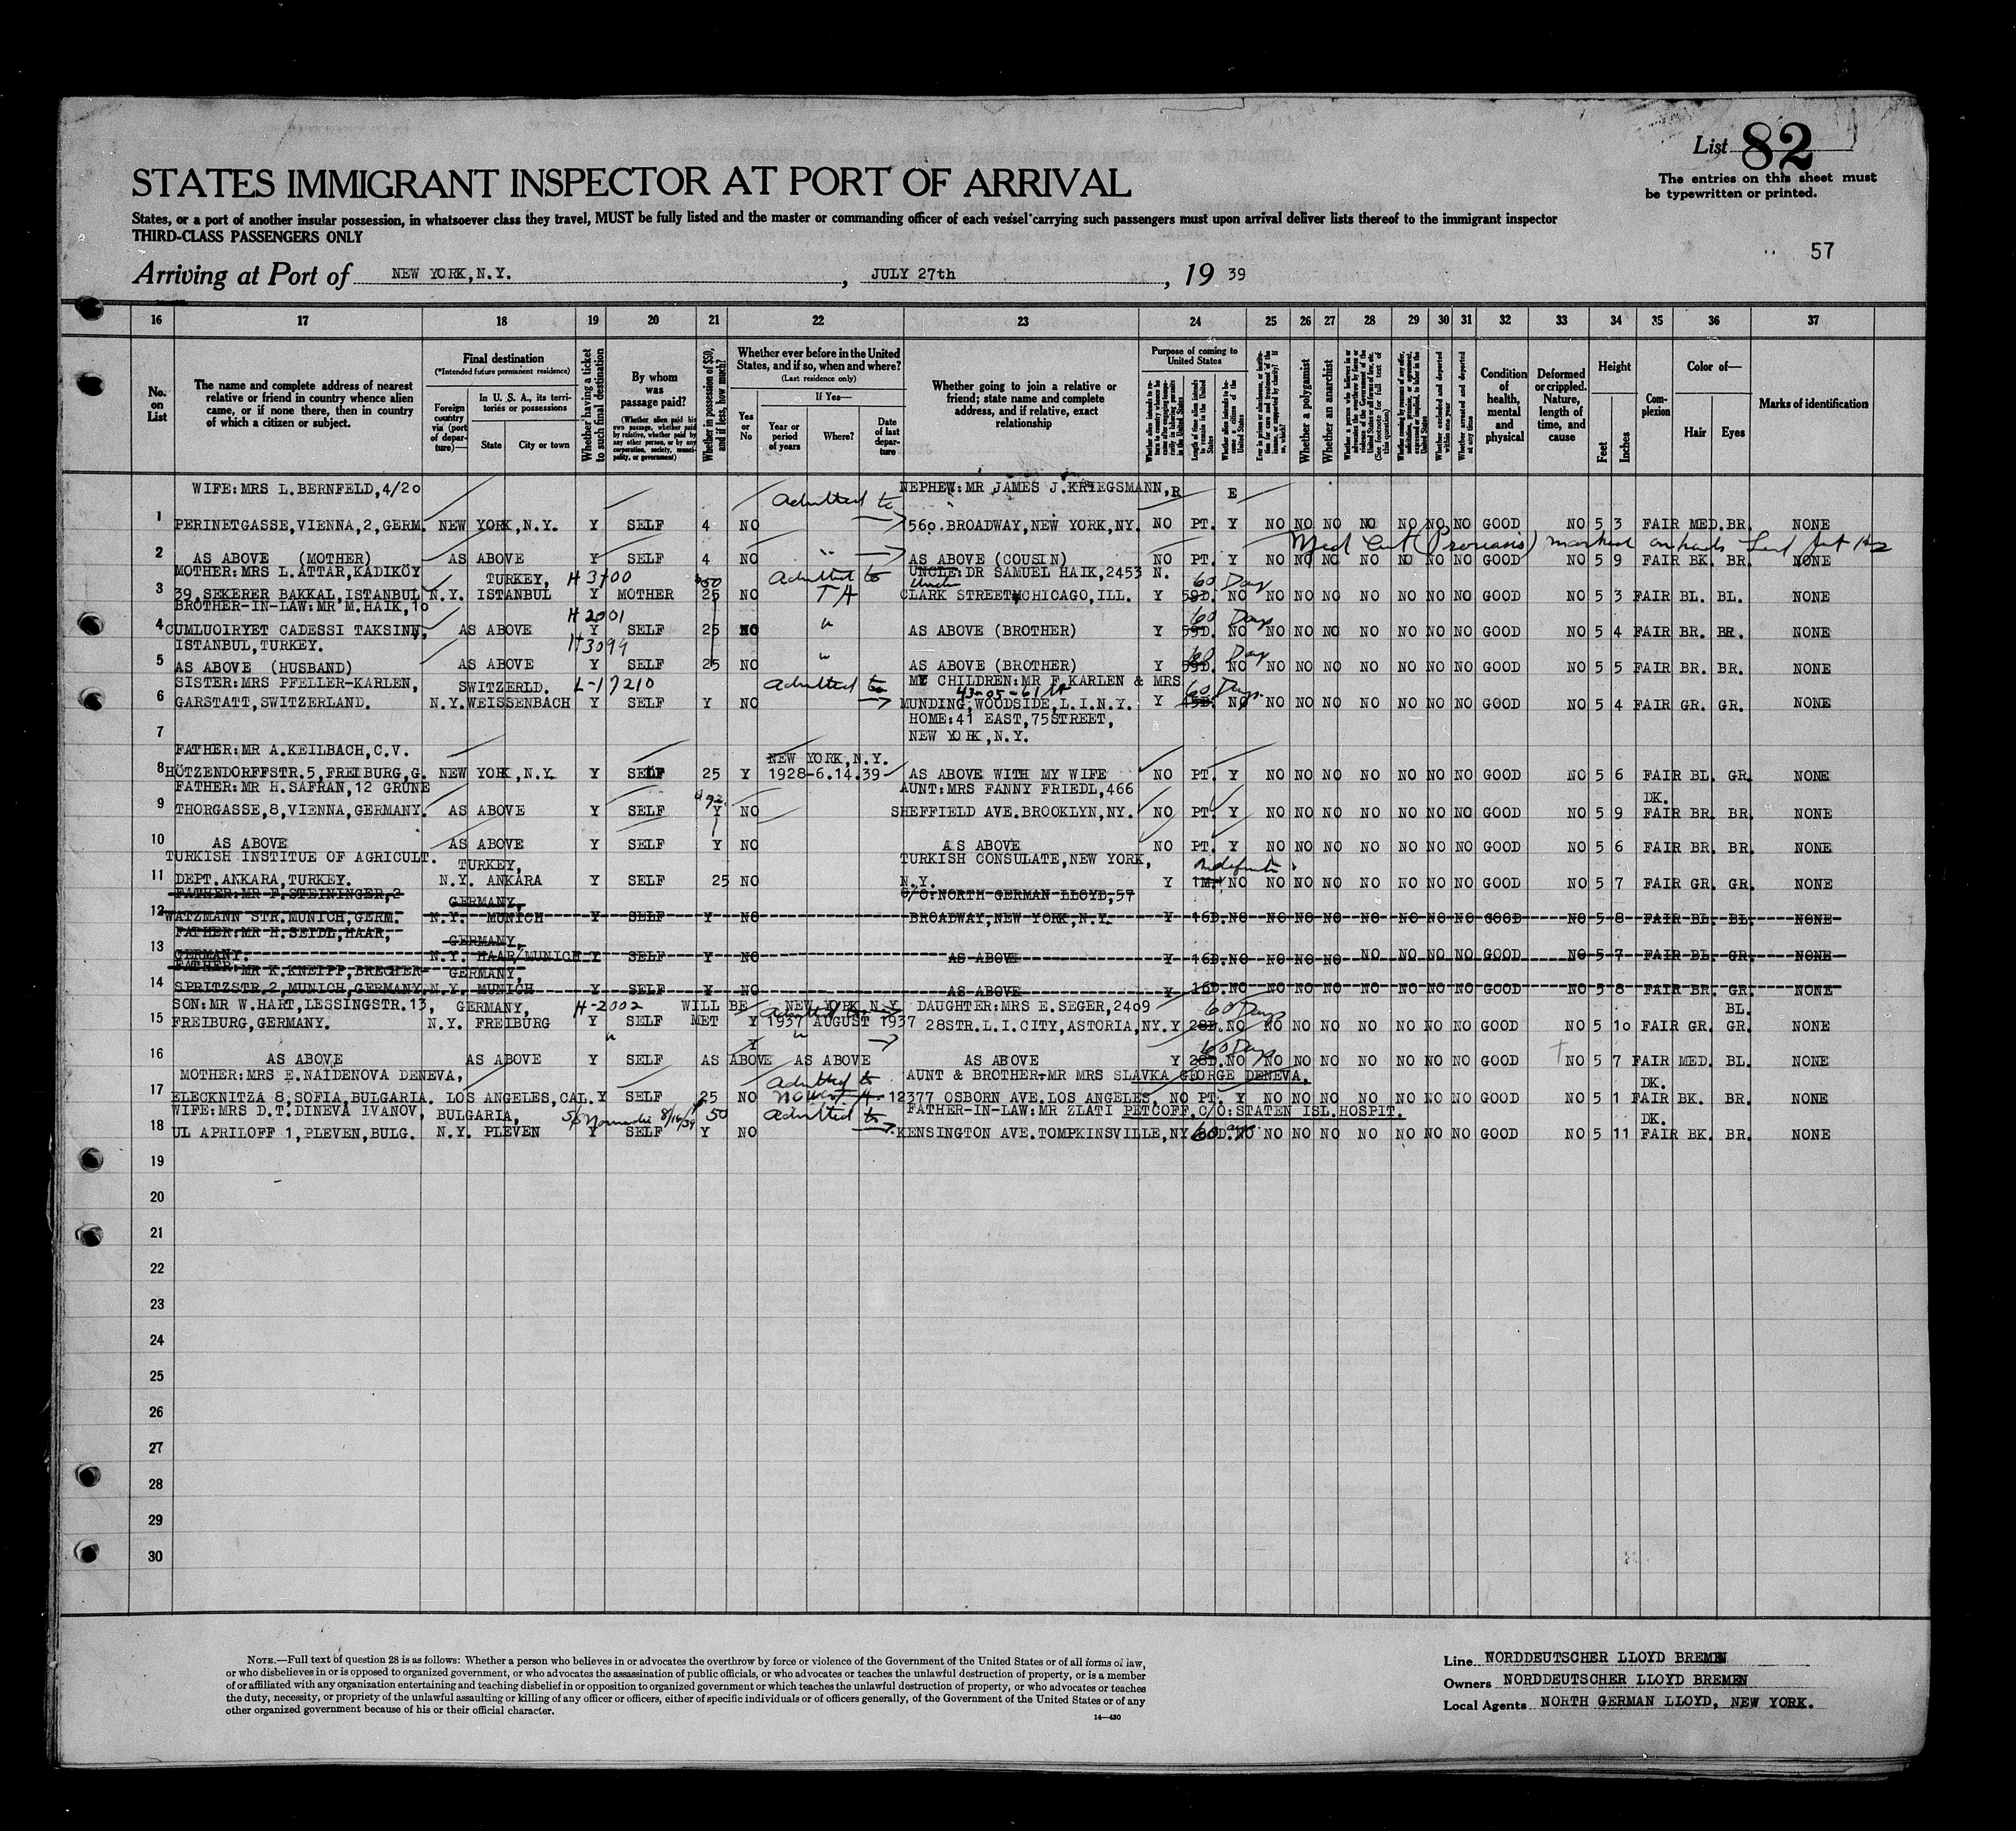 List 82
The entries on this sheet must
be typewritten or printed.
STATES IMMIGRANT INSPECTOR AT PORT OF ARRIVAL
States, or a port of another insular possession, in whatsoever class they travel, MUST be fully listed and the master or commanding officer of each vessel carrying such passengers must upon arrival deliver lists thereof to the immigrant inspector
THIRD-CLASS PASSENGERS ONLY
57
Arriving at Port of NEW YORK, N.Y. , JULY 27th , 19 39
16 17 18 19 20 21 22 23 24 25 26 27 28 29 30 31 32 33 34 35 36 37
No. on List
The name and complete address of nearest relative or friend in country whence alien came, or if none there, then in country of which a citizen or subject.
Final destination
(*Intended future permanent residence)
Foreign country via (port of departure)—
In U. S. A., its territories or possessions
State
City or town
Whether having a ticket to such final destination
By whom was passage paid?
(Whether alien paid his own passage, whether paid by relative, whether paid by any other person, or by any corporation, society, municipality, or government)
Whether in possession of $50, and if less, how much?
Whether ever before in the United States, and if so, when and where?
(Last residence only)
Yes or No
If Yes—
Year or period of years
Where?
Date of last departure
Whether going to join a relative or friend; state name and complete address, and if relative, exact relationship
Purpose of coming to United States
Length of time alien intends to remain in the United States
Whether alien intends to become a citizen of the United States
Whether a polygamist
Whether an anarchist
Whether excluded and deported within one year
Whether arrested and deported at any time
Condition of health, mental and physical
Deformed or crippled. Nature, length of time, and cause
Height
Feet
Inches
Complexion
Color of—
Hair
Eyes
Marks of identification
WIFE: MRS L. BERNFELD, 4/20 Admitted to NEPHEW: MR JAMES J. KRIEGSMANN, R E
1 PERINETGASSE, VIENNA, 2, GERM. NEW YORK, N.Y. Y SELF 4 NO 560. BROADWAY, NEW YORK, NY. NO PT. Y NO NO NO NO NO NO NO GOOD NO 5 3 FAIR MED. BR. NONE
Med Cert (Psoriasis) marked on hands
2 AS ABOVE (MOTHER) AS ABOVE Y SELF 4 NO " AS ABOVE (COUSIN) NO PT. Y NO NO NO NO NO NO NO GOOD NO 5 9 FAIR BK. BR. NONE
MOTHER: MRS L. ATTAR, KADIKÖY TURKEY, H 3700 $50 Admitted to UNCLE: DR SAMUEL HAIK, 2453 N. 60 Days
Uncle
3 39, SEKERER BAKKAL, ISTANBUL N.Y. ISTANBUL Y MOTHER 25 NO TA CLARK STREET, CHICAGO, ILL. Y 59D. NO NO NO NO NO NO NO NO GOOD NO 5 3 FAIR BL. BL. NONE
BROTHER-IN-LAW: MR M. HAIK, 10 H 2001 60 Days
4 CUMLUOIRYET CADESSI TAKSINN, AS ABOVE Y SELF 25 NO " AS ABOVE (BROTHER) Y 59D. NO NO NO NO NO NO NO NO GOOD NO 5 4 FAIR BR. BR. NONE
ISTANBUL, TURKEY. H 3099 60 Day
5 AS ABOVE (HUSBAND) AS ABOVE Y SELF 25 NO " AS ABOVE (BROTHER) Y 59D. NO NO NO NO NO NO NO NO GOOD NO 5 5 FAIR BR. BR. NONE
SISTER: MRS PFELLER-KARLEN, SWITZERLD. L-17210 Admitted to MY CHILDREN: MR F. KARLEN & MRS 60 Days.
43-05-61 St
6 GARSTATT, SWITZERLAND. N.Y. WEISSENBACH Y SELF Y NO MUNDING, WOODSIDE, L.I.N.Y. Y 45D. NO NO NO NO NO NO NO NO GOOD NO 5 4 FAIR GR. GR. NONE
HOME: 41 EAST, 75STREET,
7 NEW YORK, N.Y.
FATHER: MR A. KEILBACH, C.V. NEW YORK, N.Y.
8 HÖTZENDORFFSTR. 5, FREIBURG, G. NEW YORK, N.Y. Y SELF 25 Y 1928-6.14.39 AS ABOVE WITH MY WIFE NO PT. Y NO NO NO NO NO NO NO GOOD NO 5 6 FAIR BL. GR. NONE
FATHER: MR H. SAFRAN, 12 GRÜNE AUNT: MRS FANNY FRIEDL, 466 DK.
9 THORGASSE, 8, VIENNA, GERMANY. AS ABOVE Y SELF Y NO SHEFFIELD AVE. BROOKLYN, NY. NO PT. Y NO NO NO NO NO NO NO GOOD NO 5 9 FAIR BR. BR. NONE
10 AS ABOVE AS ABOVE Y SELF Y NO AS ABOVE NO PT. Y NO NO NO NO NO NO NO GOOD NO 5 6 FAIR BR. BR. NONE
TURKISH INSTITUE OF AGRICULT. TURKEY, TURKISH CONSULATE, NEW YORK, Indefinite
11 DEPT. ANKARA, TURKEY. N.Y. ANKARA Y SELF 25 NO N.Y. Y 1M. NO NO NO NO NO NO NO NO GOOD NO 5 7 FAIR GR. GR. NONE
FATHER: MR P. STEININGER, 2 GERMANY, C/O: NORTH GERMAN LLOYD, 57
12 WATZMANN STR, MUNICH, GERM. N.Y. MUNICH Y SELF Y NO BROADWAY, NEW YORK, N.Y. Y 16D. NO NO NO NO NO NO NO NO GOOD NO 5 8 FAIR BL. BL. NONE
FATHER: MR H. SEIDL, HAAR, GERMANY,
13 GERMANY. N.Y. HAAR/MUNICH Y SELF Y NO AS ABOVE Y 16D. NO NO NO NO NO NO NO NO GOOD NO 5 7 FAIR BL. GR. NONE
FATHER: MR K. KNEIPP, BRECHER- GERMANY,
14 SPRITZSTR. 2, MUNICH, GERMANY. N.Y. MUNICH Y SELF Y NO AS ABOVE Y 16D. NO NO NO NO NO NO NO NO GOOD NO 5 8 FAIR BR. GR. NONE
SON: MR W. HART, LESSINGSTR. 13, GERMANY, H-2002 WILL BE NEW YORK N.Y. DAUGHTER: MRS E. SEGER, 2409 60 Days BL.
Admitted to
15 FREIBURG, GERMANY. N.Y. FREIBURG Y SELF MET Y 1937 AUGUST 1937 28STR. L.I. CITY, ASTORIA, NY. Y 28D. NO NO NO NO NO NO NO NO GOOD NO 5 10 FAIR GR. GR. NONE
" Y " 60 Days
16 AS ABOVE AS ABOVE Y SELF AS ABOVE AS ABOVE AS ABOVE Y 28D. NO NO NO NO NO NO NO NO GOOD NO 5 7 FAIR MED. BL. NONE
MOTHER: MRS E. NAIDENOVA DENEVA, Admitted to AUNT & BROTHER-MR MRS SLAVKA GEORGE DENEVA, DK.
17 ELECKNITZA 8, SOFIA, BULGARIA. LOS ANGELES, CAL. Y SELF 25 NO 12377 OSBORN AVE. LOS ANGELES, NO PT. Y NO NO NO NO NO NO NO GOOD NO 5 1 FAIR BK. BR. NONE
WIFE: MRS D.T. DINEVA IVANOV, BULGARIA, S/S Normandie 8/16/39 50 Admitted to FATHER-IN-LAW: MR ZLATI PETCOFF, C/O: STATEN ISL. HOSPIT. DK.
18 UL APRILOFF 1, PLEVEN, BULG. N.Y. PLEVEN Y SELF Y NO KENSINGTON AVE. TOMPKINSVILLE, NY 60D. NO NO NO NO NO NO NO NO GOOD NO 5 11 FAIR BK. BR. NONE
19
20
21
22
23
24
25
26
27
28
29
30
NOTE.—Full text of question 28 is as follows: Whether a person who believes in or advocates the overthrow by force or violence of the Government of the United States or of all forms of law,
or who disbelieves in or is opposed to organized government, or who advocates the assassination of public officials, or who advocates or teaches the unlawful destruction of property, or is a member
of or affiliated with any organization entertaining and teaching disbelief in or opposition to organized government or which teaches the unlawful destruction of property, or who advocates or teaches
the duty, necessity, or propriety of the unlawful assaulting or killing of any officer or officers, either of specific individuals or of officers generally, of the Government of the United States or of any
other organized government because of his or their official character.
14—430
Line NORDDEUTSCHER LLOYD BREMEN
Owners NORDDEUTSCHER LLOYD BREMEN
Local Agents NORTH GERMAN LLOYD, NEW YORK.